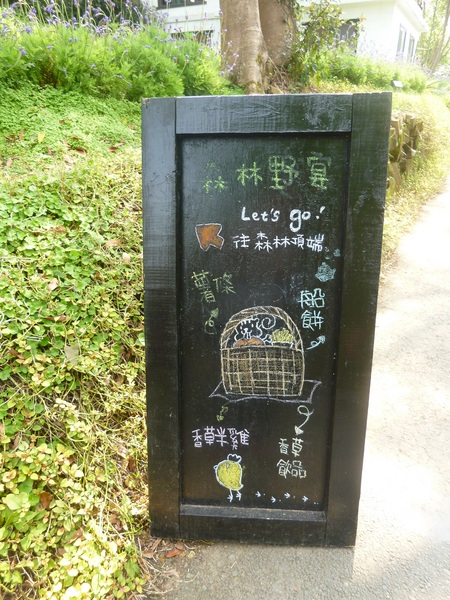 森林野宴
Let's go!
往森林頂端
薯條
船餅
香草半雞
香草飲品